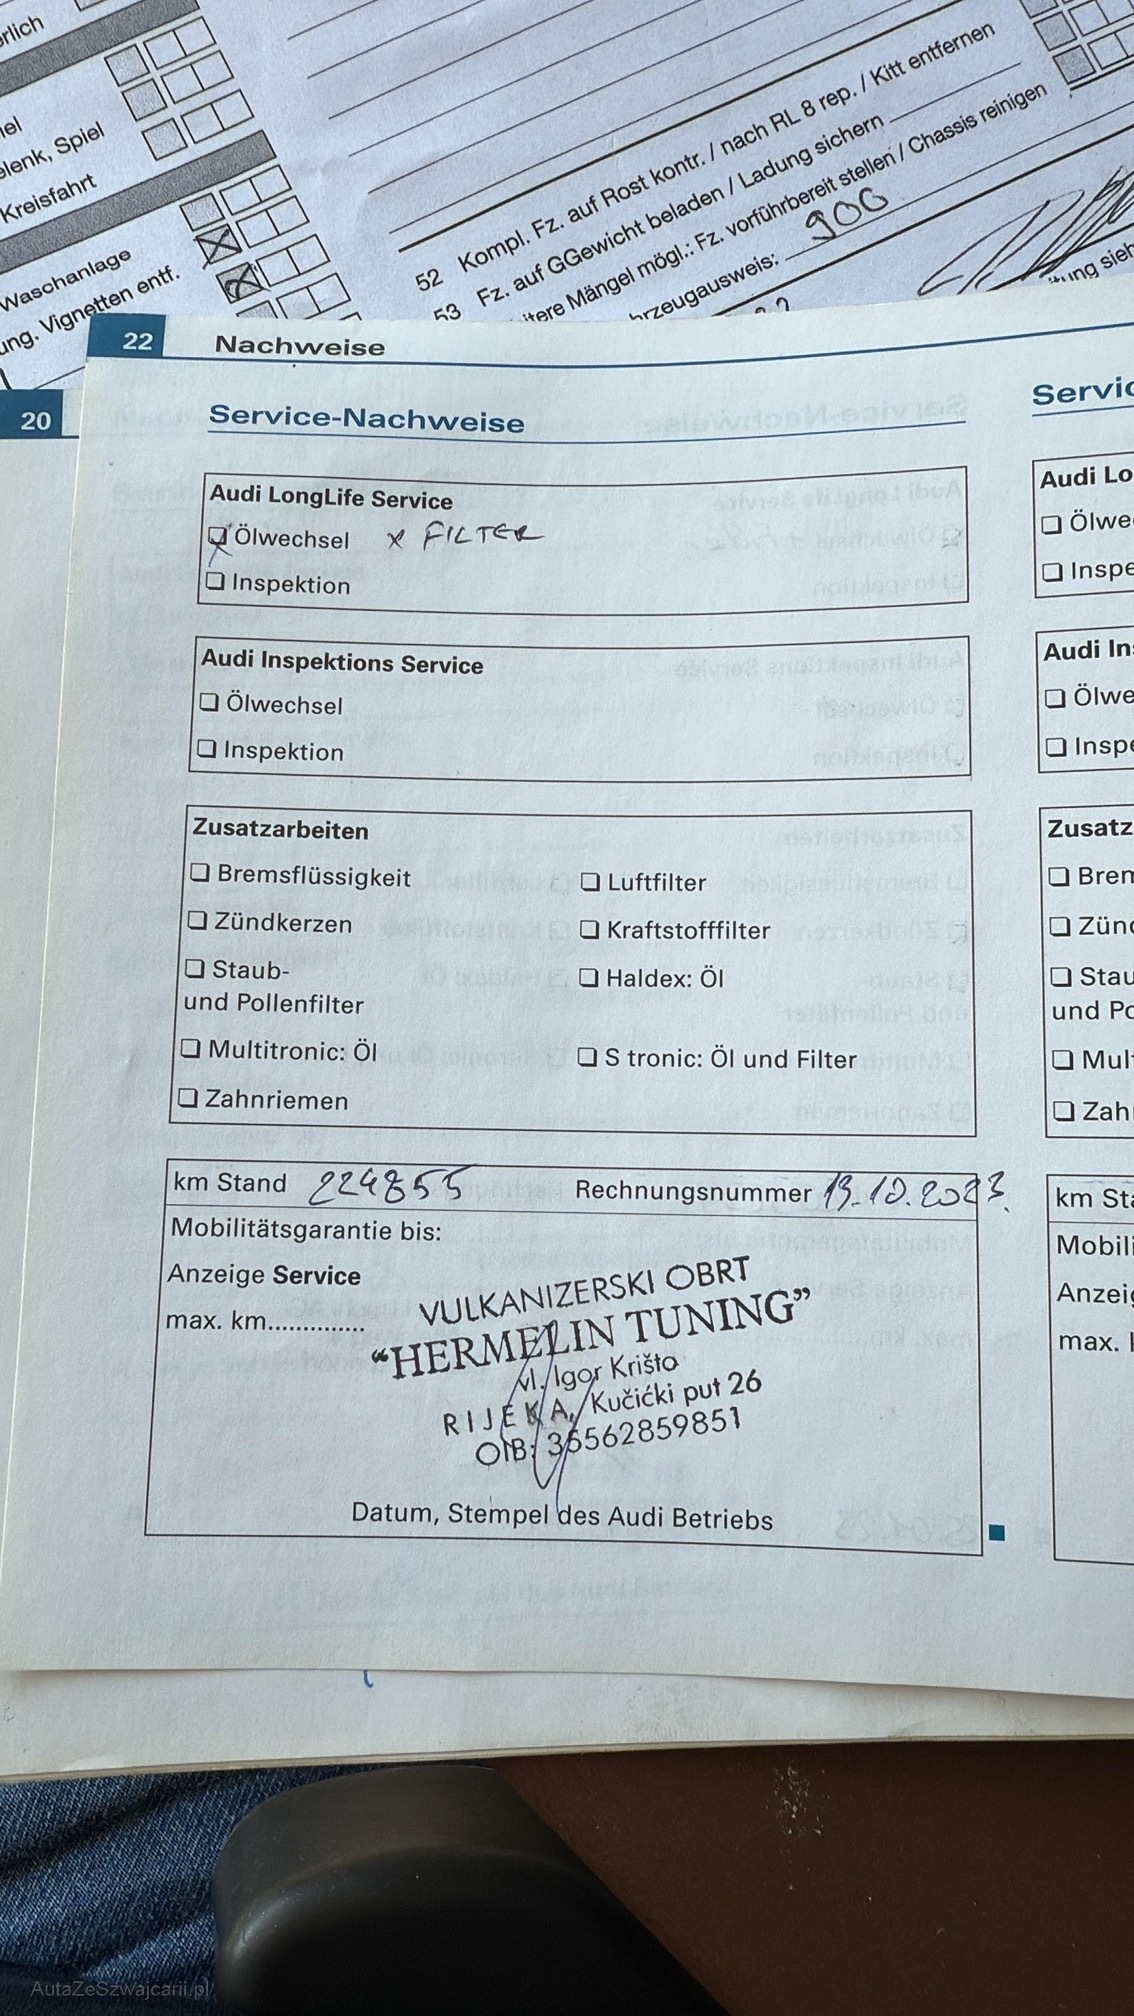 elenk, Spiel
Kreisfahrt
Waschanlage
ung. Vignetten entf.
52 Kompl. Fz. auf Rost kontr. / nach RL 8 rep. / Kitt entfernen
53 Fz. auf GGewicht beladen / Ladung sichern
itere Mängel mögl.: Fz. vorführbereit stellen / Chassis reinigen
hrzeugausweis: 900
22 Nachweise
20
Service-Nachweise
Audi LongLife Service
Ölwechsel x FILTER
Inspektion
Audi Inspektions Service
Ölwechsel
Inspektion
Zusatzarbeiten
Bremsflüssigkeit Luftfilter
Zündkerzen Kraftstofffilter
Staub- Haldex: Öl
und Pollenfilter
Multitronic: Öl S tronic: Öl und Filter
Zahnriemen
km Stand 224855 Rechnungsnummer 13.10.2023.
Mobilitätsgarantie bis:
Anzeige Service
max. km..............
VULKANIZERSKI OBRT
"HERMELIN TUNING"
vl. Igor Krišto
RIJEKA, Kučićki put 26
OIB: 36562859851
Datum, Stempel des Audi Betriebs
Servic
Audi Lo
Ölwe
Inspe
Audi In
Ölwe
Inspe
Zusatz
Brem
Zünd
Stau
und Po
Mul
Zah
km Sta
Mobili
Anzeig
max. k
AutaZeSzwajcarii.pl